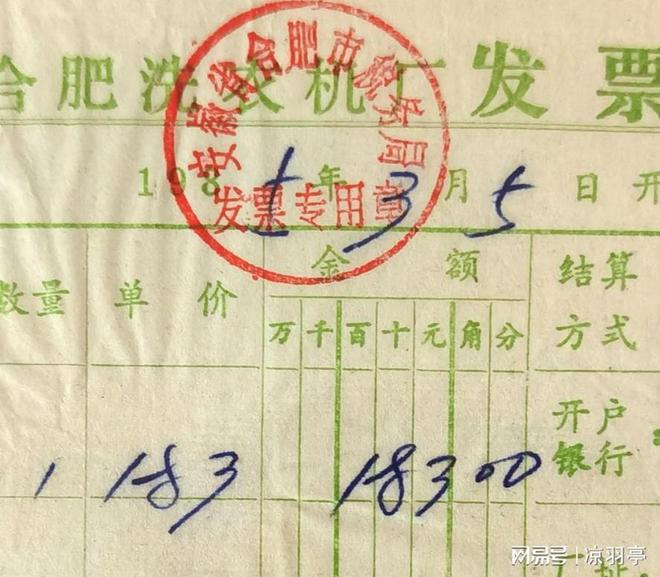 合肥洗衣机厂发票
安徽省合肥市税务局
发票专用章
1985年3月5日开
数量 单价 金额 结算方式
万千百十元角分
1 183 18300 开户银行
网易号 | 凉羽亭